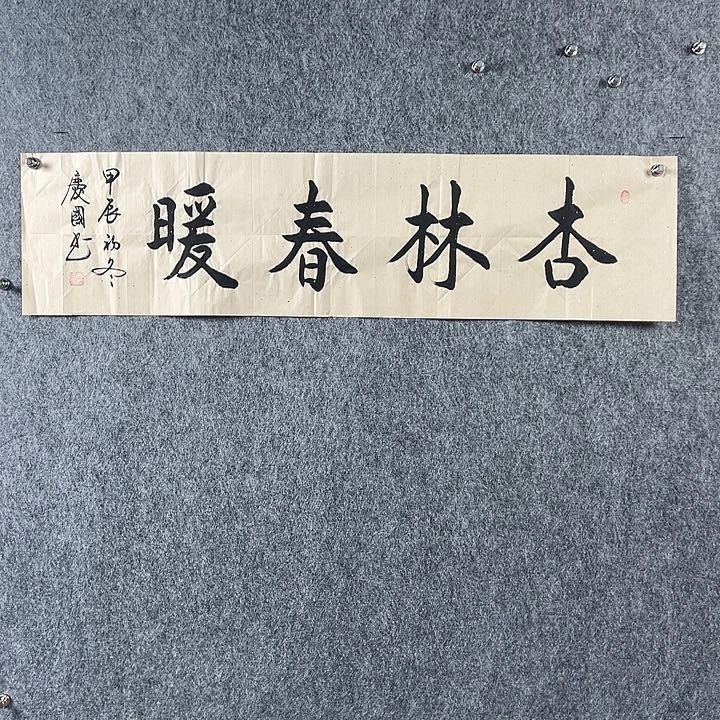 杏林春暖
甲辰初冬
慶國書